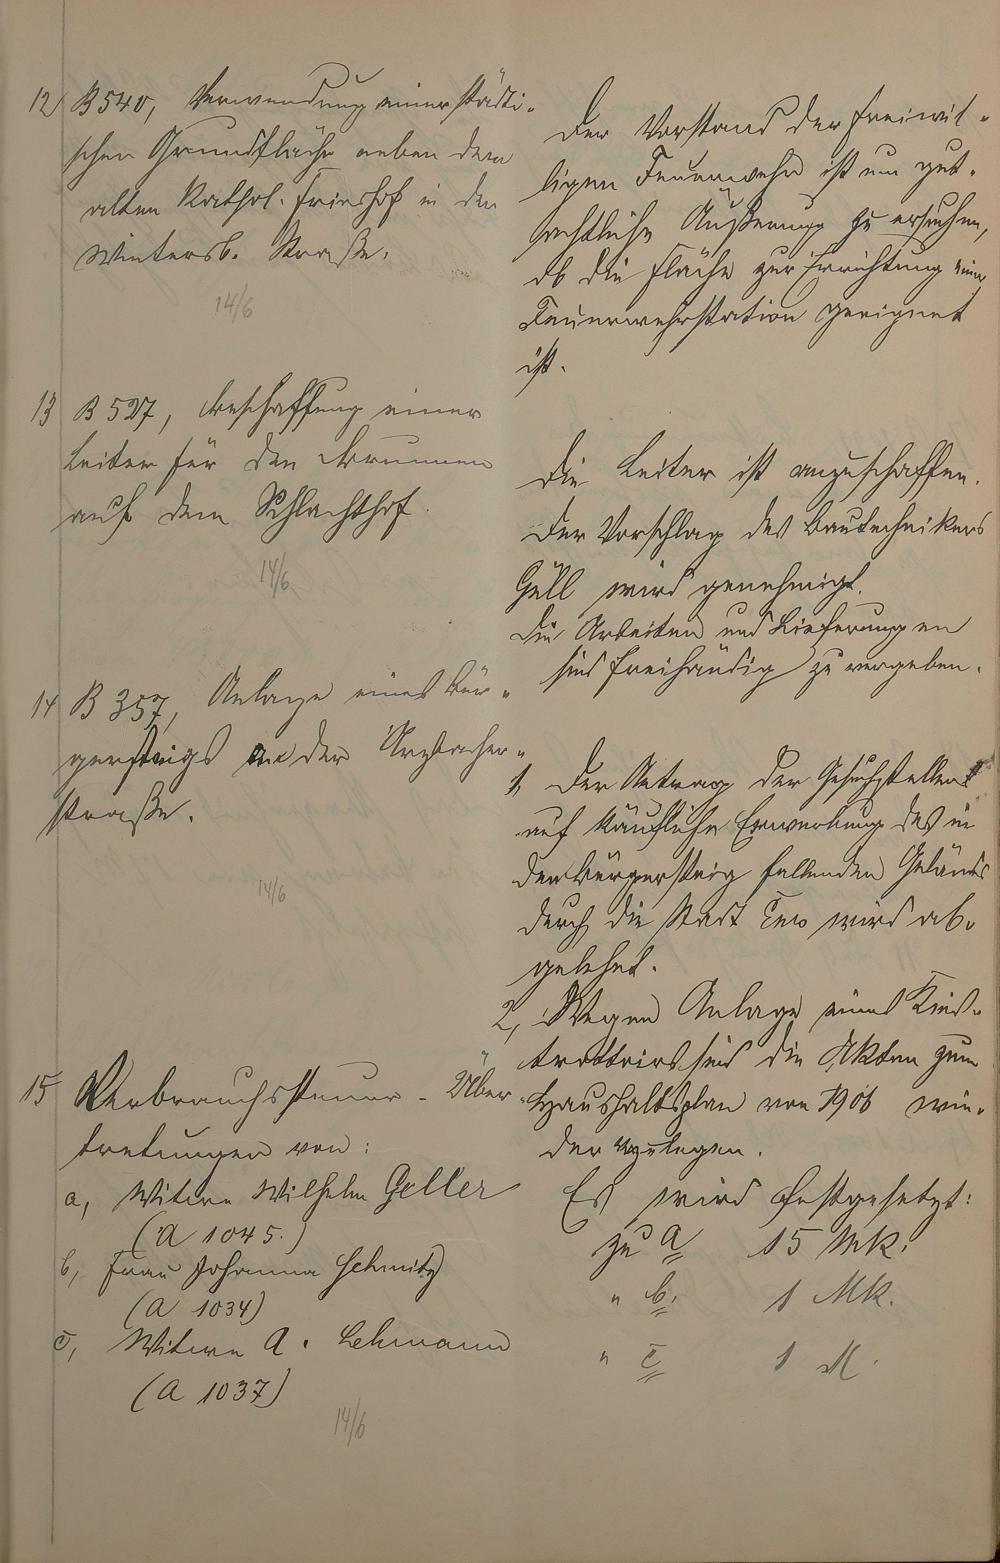 12) B 540, Verwendung einer städti-
schen Grundfläche neben dem
alten kathol. Friedhof in der
Wintersb. Straße.
14/6
Der Vorstand der Freiwil-
ligen Feuerwehr ist um gut-
achtliche Äußerung zu ersuchen,
ob die Fläche zur Errichtung einer
Feuerwehrstation geeignet
ist.
13 B 527, Beschaffung einer
Leiter für den Brunnen
auf dem Schlachthof.
14/6
Die Leiter ist anzuschaffen.
Der Vorschlag des Bautechnikers
Güll wird genehmigt.
Die Arbeiten und Lieferungen
sind freihändig zu vergeben.
14 B 357, Anlage eines Bür-
gersteigs an der Arzbacher-
straße.
14/6
1, Der Antrag der Gesuchsteller
auf käufliche Erwerbung des in
den Bürgersteig fallenden Geländes
durch die Stadt Ems wird ab-
gelehnt.
2, Wegen Anlage eines Kies-
trottoirs sind die Akten zum
Haushaltsplan von 1906 wie-
der vorzulegen.
15 Verbrauchssteuer-Über-
tretungen von:
a, Witwe Wilhelm Geller
(A 1045.)
b, Frau Johanna Schmitz
(A 1034)
c, Witwe A. Lehmann
(A 1037)
14/6
Es wird festgesetzt:
zu a 15 Mk.
" b. 1 Mk.
" c 1 M.